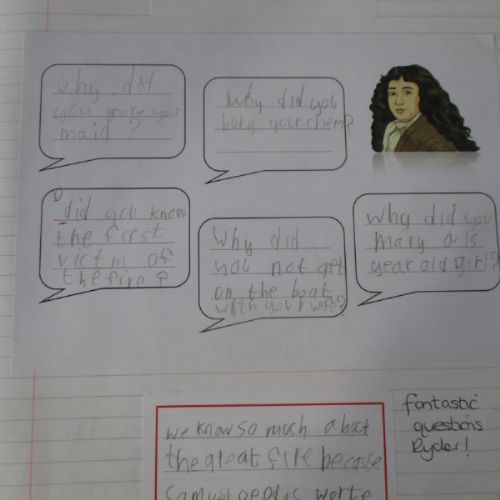 why did
you
maid ?
Why did you
bury your chees?
D
did you know
the first
victm of
the fire ?
Why did
you not get
on the boat
with your wife?
Why did you
mary a 15
year old girl?
we know so much about
the great fire because
wrote
fantastic
questions
Ryder!